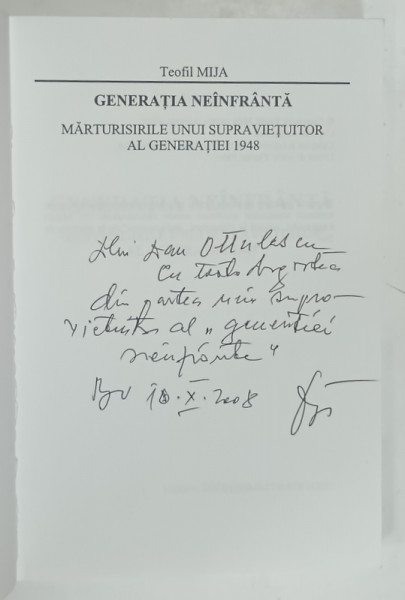 Teofil MIJA
GENERAȚIA NEÎNFRÂNTĂ
MĂRTURISIRILE UNUI SUPRAVIEȚUITOR
AL GENERAȚIEI 1948
Dlui Dan Ottulescu
Cu toată dragostea
din partea unui supra-
viețuitor al „generației
neînfrânte"
Bv 10.X.2008